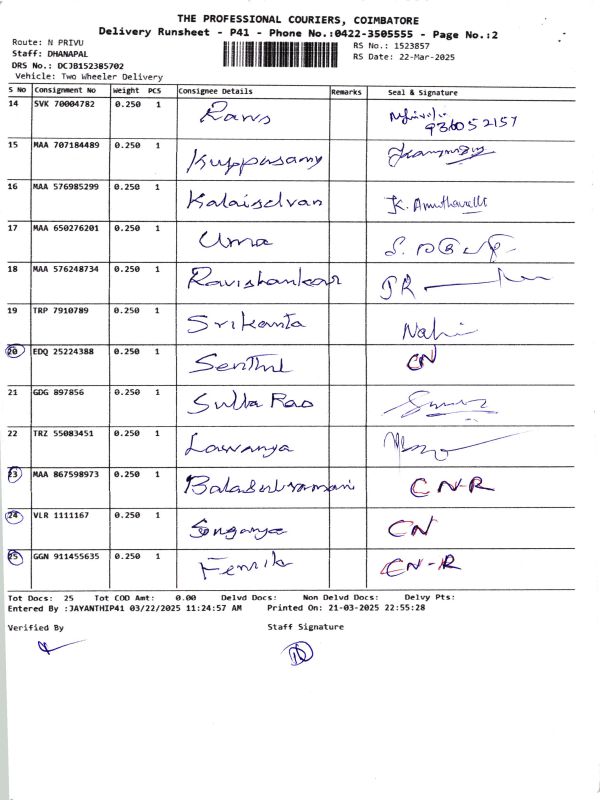 THE PROFESSIONAL COURIERS, COIMBATORE
Delivery Runsheet - P41 - Phone No.:0422-3505555 - Page No.:2
Route: N PRIVU
RS No.: 1523857
Staff: DHANAPAL
RS Date: 22-Mar-2025
DRS No.: DCJB152385702
Vehicle: Two Wheeler Delivery
S No Consignment No Weight PCS Consignee Details Remarks Seal & Signature
14 SVK 70004782 0.250 1 Rams
15 MAA 707184489 0.250 1 Kuppusamy
16 MAA 576985299 0.250 1 Kalaiselvan K. Amuthavalli
17 MAA 650276201 0.250 1 Uma
18 MAA 576248734 0.250 1 Ravishankar
19 TRP 7910789 0.250 1 Srikanta
20 EDQ 25224388 0.250 1 Senthil CN
21 GDG 897856 0.250 1 Subba Rao
22 TRZ 55083451 0.250 1 Lawanya
23 MAA 867598973 0.250 1 Balasubramani CN-R
24 VLR 1111167 0.250 1 CN
25 GGN 911455635 0.250 1 CN-R
Tot Docs: 25 Tot COD Amt: 0.00 Delvd Docs: Non Delvd Docs: Delvy Pts:
Entered By :JAYANTHIP41 03/22/2025 11:24:57 AM Printed On: 21-03-2025 22:55:28
Verified By Staff Signature